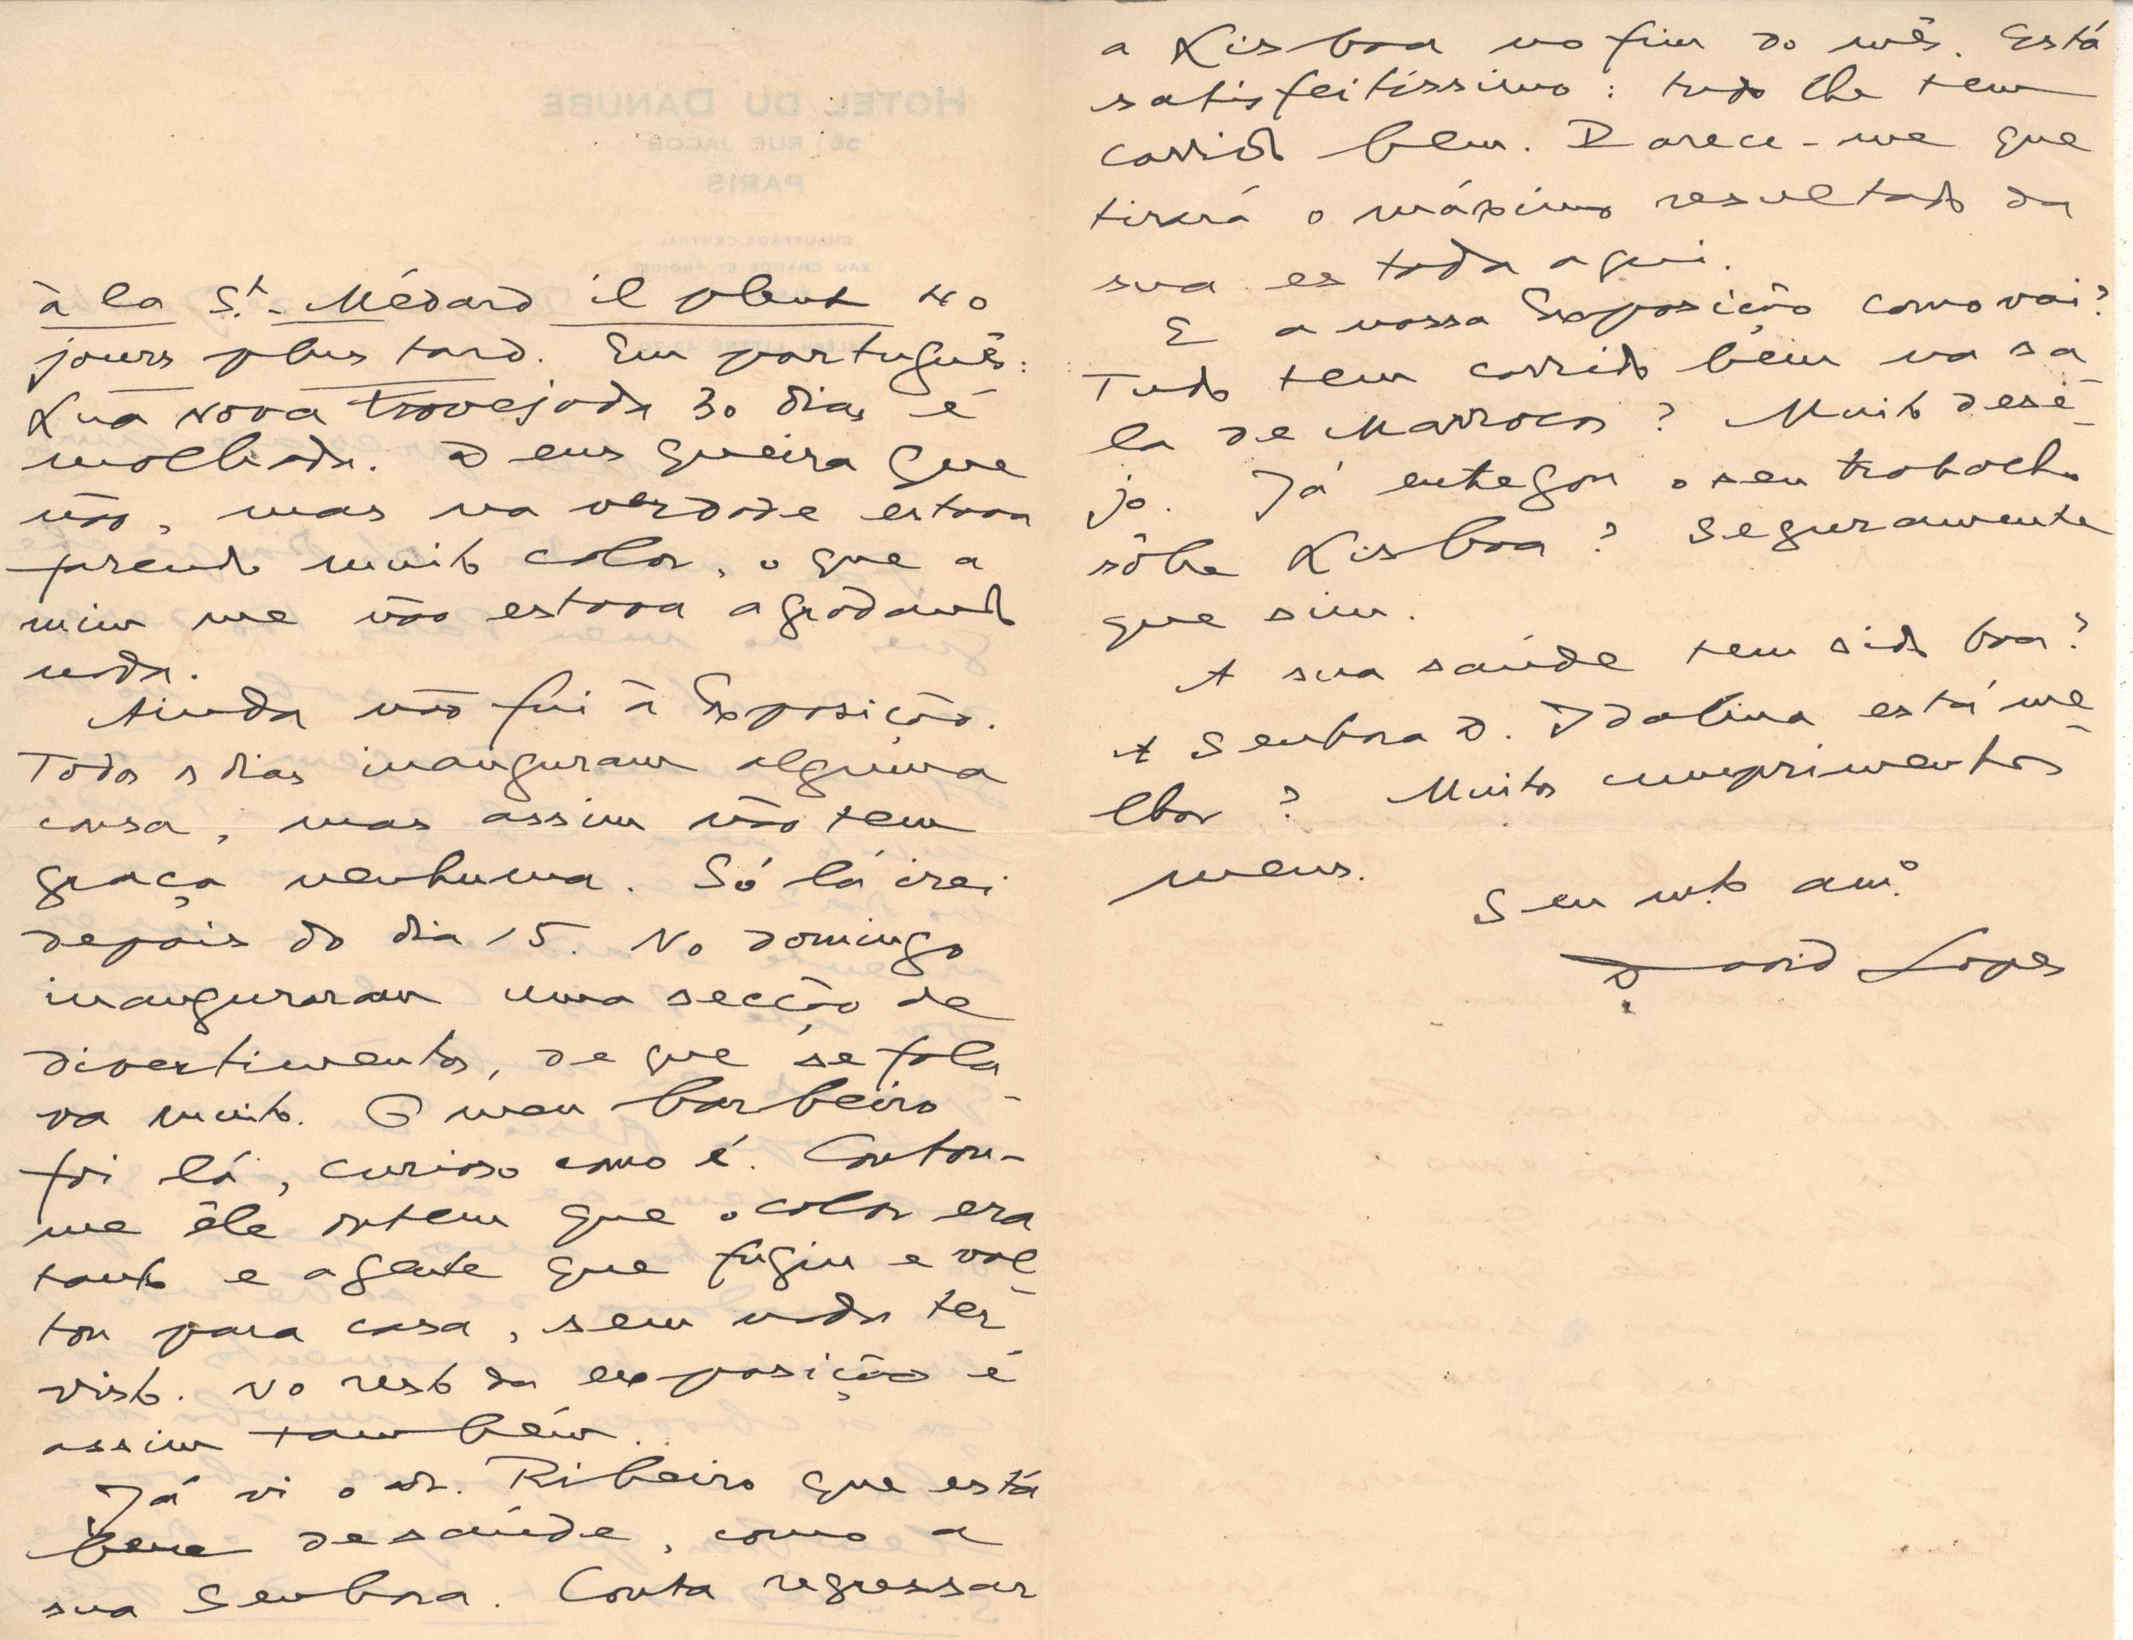 à la St.-Médard il pleut 40
jours plus tard. Em português:
Lua nova trovejada 30 dias é
molhada. Deus queira que
não, mas na verdade estava
fazendo muito calor, o que a
mim me não estava agradando
nada.
Ainda não fui à Exposição.
Todos os dias inauguram alguma
cousa, mas assim não tem
graça nenhuma. Só lá irei
depois do dia 15. No domingo
inauguraram uma secção de
divertimentos, de que se fala-
va muito. O meu barbeiro
foi lá, curioso como é. Contou-
me êle ontem que o calor era
tanto e a gente que fugiu e vol-
tou para casa, sem nada ter
visto. No resto da exposição é
assim também.
Já vi o dr. Ribeiro que está
bem de saúde, como a
sua Senhora. Conta regressar
a Lisboa no fim do mês. Está
satisfeitíssimo: tudo lhe tem
corrido bem. Parece-me que
tirará o máximo resultado da
sua estada aqui.
E a nossa Exposição como vai?
Tudo tem corrido bem na sa-
la de Marrocos? Muito dese-
jo. Já entregou o seu trabalho
sôbre Lisboa? Seguramente
que sim.
A sua saúde tem sido boa?
A Senhora D. Idalina está me-
lhor? Muitos cumprimentos
meus.
Seu mto. am.º
David Lopes
HOTEL DU DANUBE
58, RUE JACOB
PARIS
CHAUFFAGE CENTRAL
EAU CHAUDE ET FROIDE